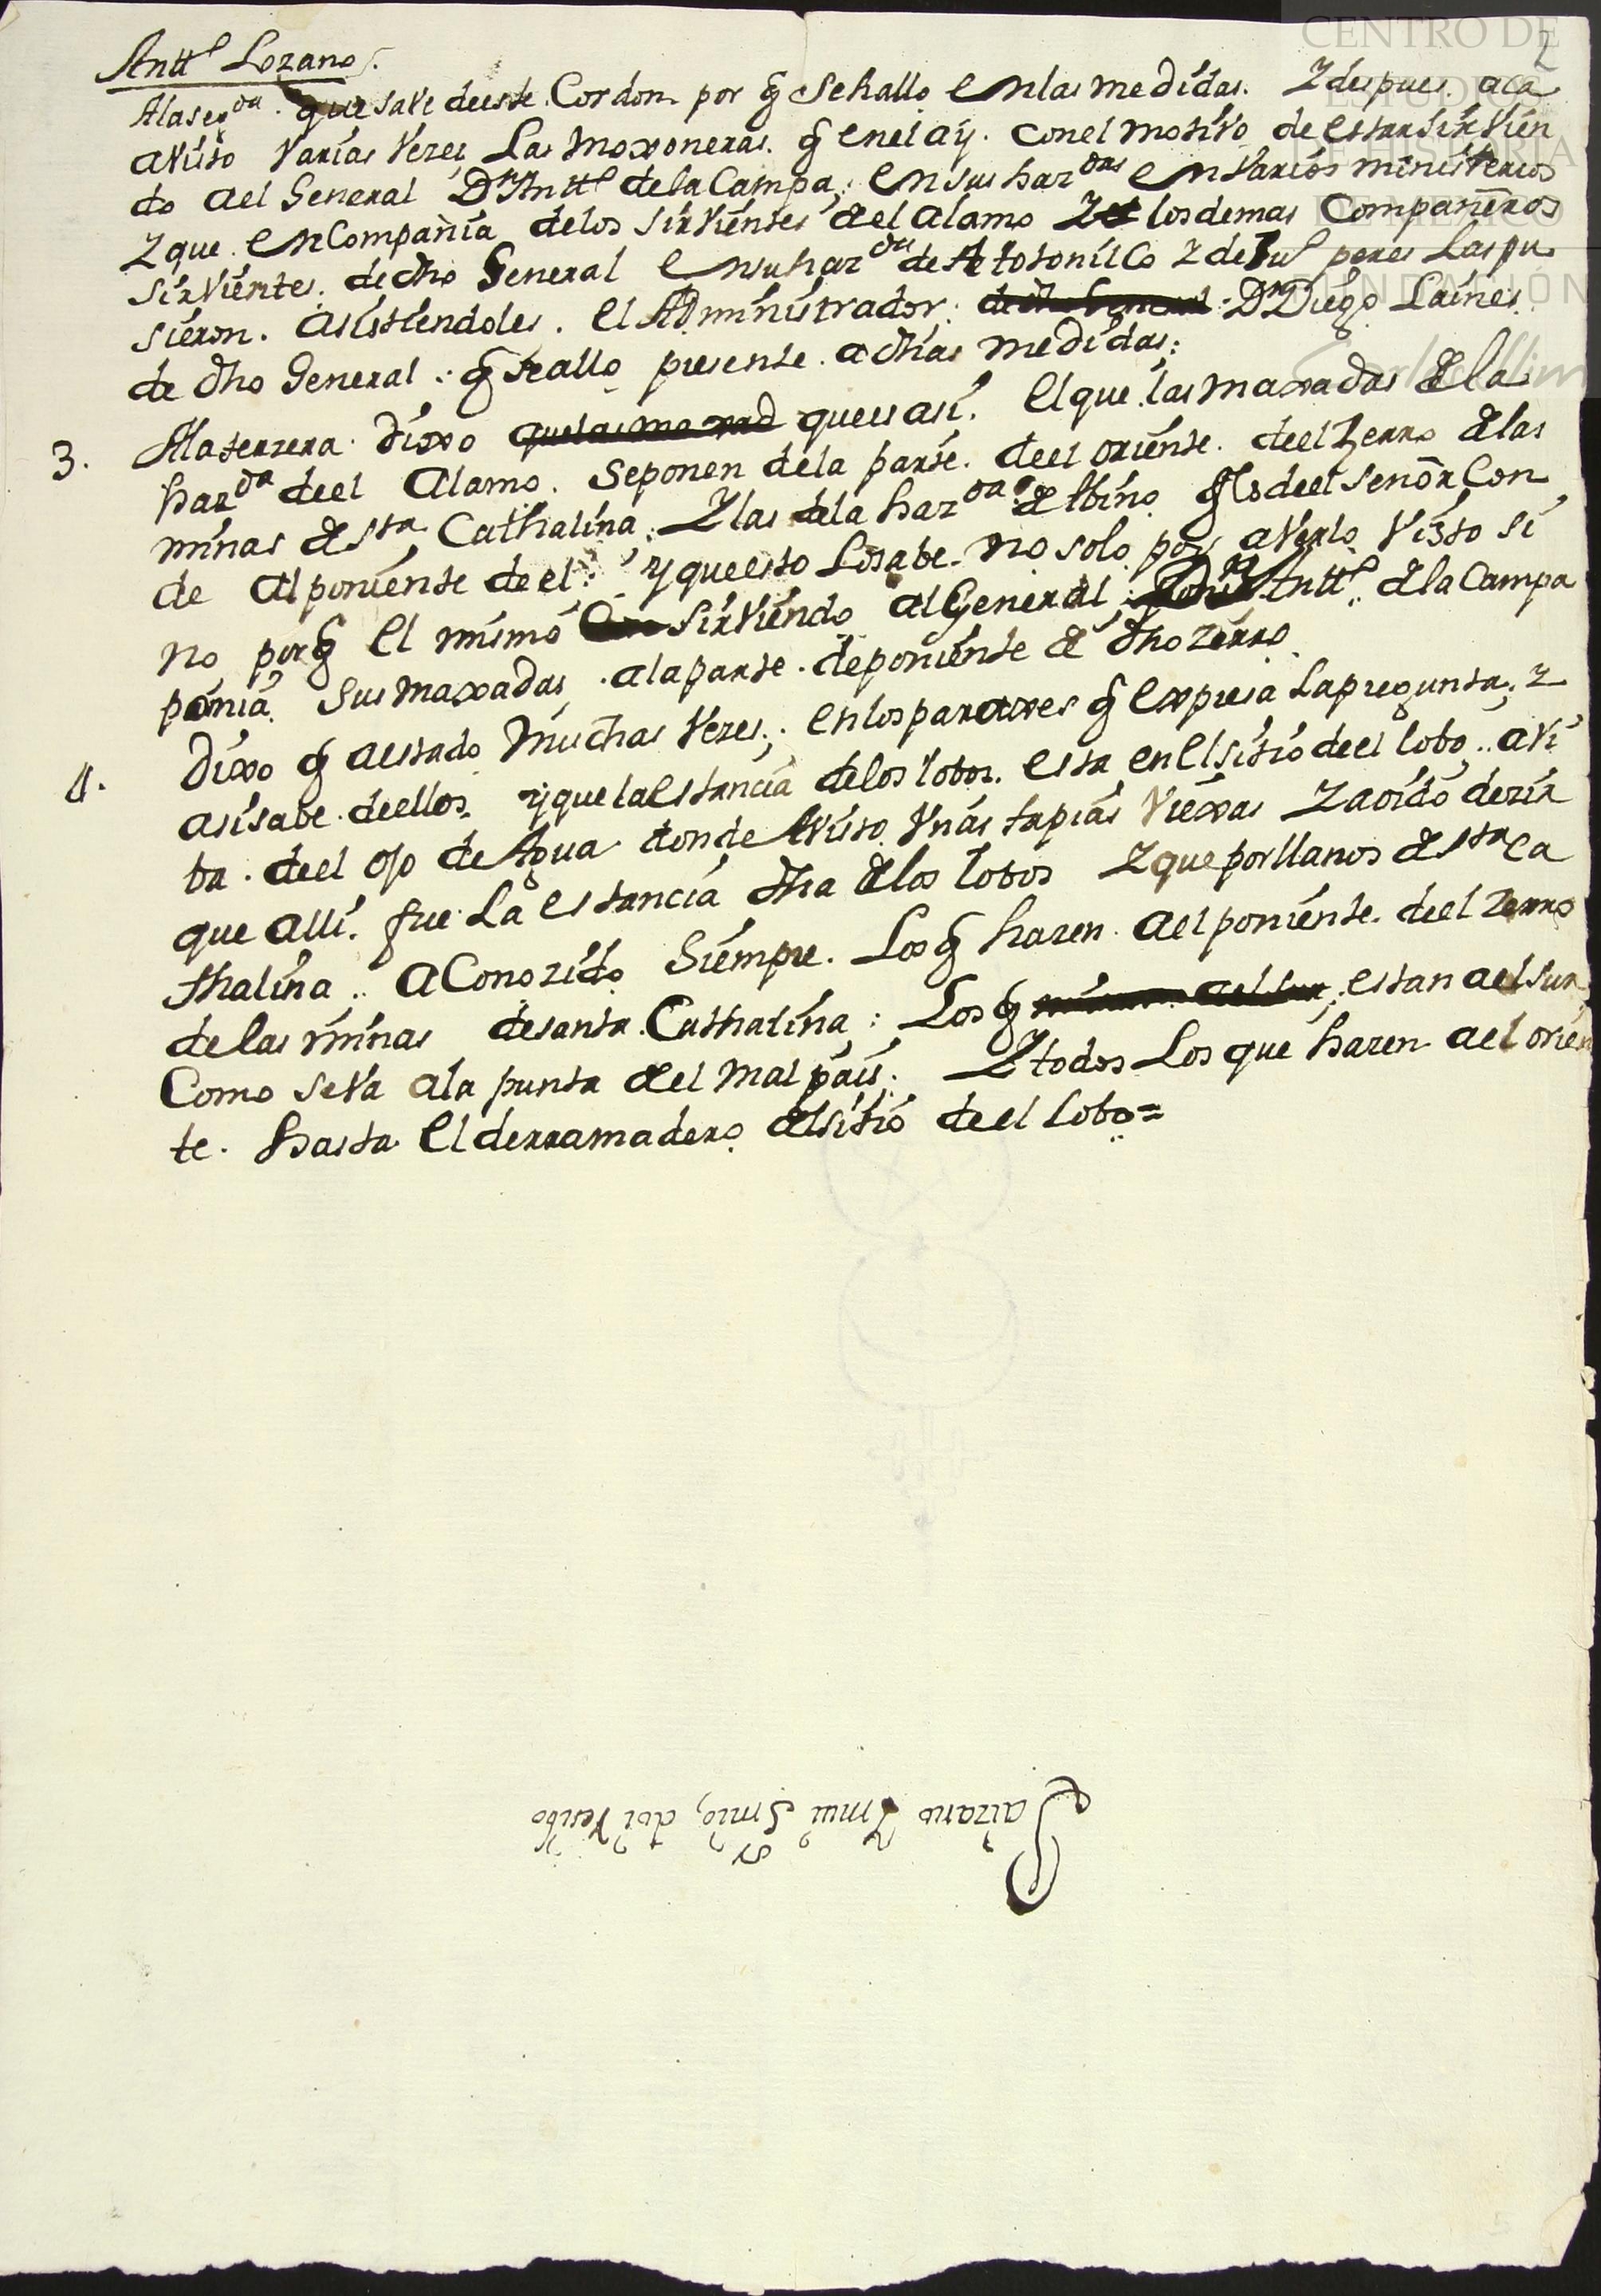 2
Antt.º Lozano.
Alaseg.da que save deeste Cordon por q̃ sehallo enlas medidas. Z despues aca
avisto varias vezes Las moxoneras. q̃ enel aÿ. conel motivo de estar sirvien
do ael General D.n Antt.º dela Campa; ensus haz.das en varios ministerios
Z que en Compañia delos sirvientes del alamo Z los demas Compañeros
sirvientes de dho General ensu haz.da de Atotonilco Z de Ju.º peres Las pu
sieron. asistiendoles. el Administrador: de dho General: D.n Diego Laines
de dho General: q̃ seallo presente a dhas medidas:
3. Alaterzera dixo que las maxad que es asi. el que las maxadas de la
haz.da deel Alamo. seponen dela parte deel oriente deel Zerro de las
minas de S.ta Cathalina: Z las dela haz.da de Abino q̃ es deel señor Con
de al poniente de el: y que esto Lo sabe no solo por averlo visto si
no porq̃ el mismo sirviendo al General D.n Antt.º de la Campa
ponia sus maxadas ala parte de poniente de dho Zerro
4. Dixo q̃ aestado muchas vezes; enlos paraxes q̃ expresa La pregunta; Z
asi sabe deellos y que la estancia de los lobos. esta en el sitio deel lobo.. avi
ba deel ojo de Agua donde avisto unas tapias viexas Z aoido dezir
que alli. fue La estancia dha de los lobos Z que por llanos de S.ta Ca
thalina.. aConozido siempre. Los q̃ hazen ael poniente deel Zerro
de las minas de santa Cathalina: Los q̃ ael sur; estan ael sur
Como se va ala punta del mal pais; Z todos Los que hazen ael orien
te. hasta el derramadero del sitio de el lobo=